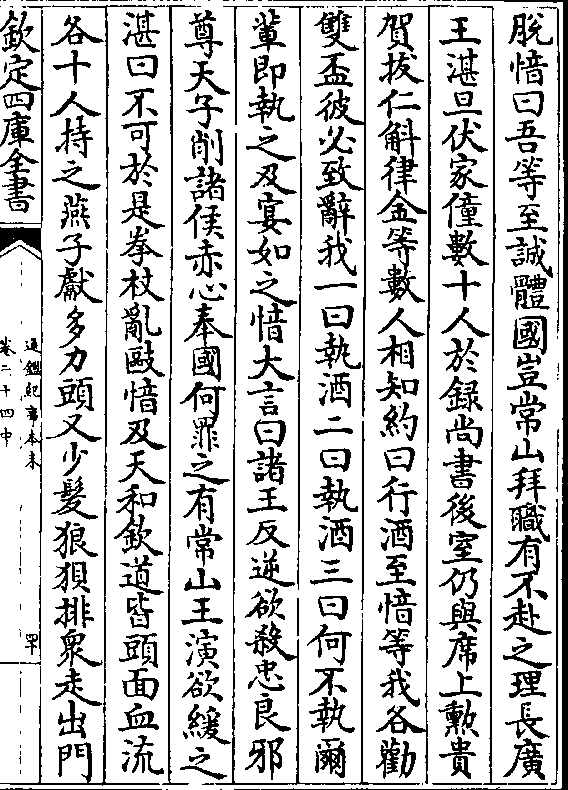 脫愔曰吾等至誠體國豈常山拜職有不赴之理長廣
王湛旦伏家僮數十人於録尚書後室仍與席上勲貴
賀拔仁斛律金等數人相知約曰行酒至愔等我各勸
雙盃彼必致辭我一曰執酒二曰執酒三曰何不執爾
輩即執之及宴如之愔大言曰諸王反逆欲殺忠良邪
尊天子削諸侯赤心奉國何罪之有常山王演欲緩之
湛曰不可於是拳杖亂毆愔及天和欽道皆頭面血流
各十人持之燕子獻多力頭又少髮狼狽排衆走出門
欽定四庫全書
通鑑紀事本末
卷二十四中
罕